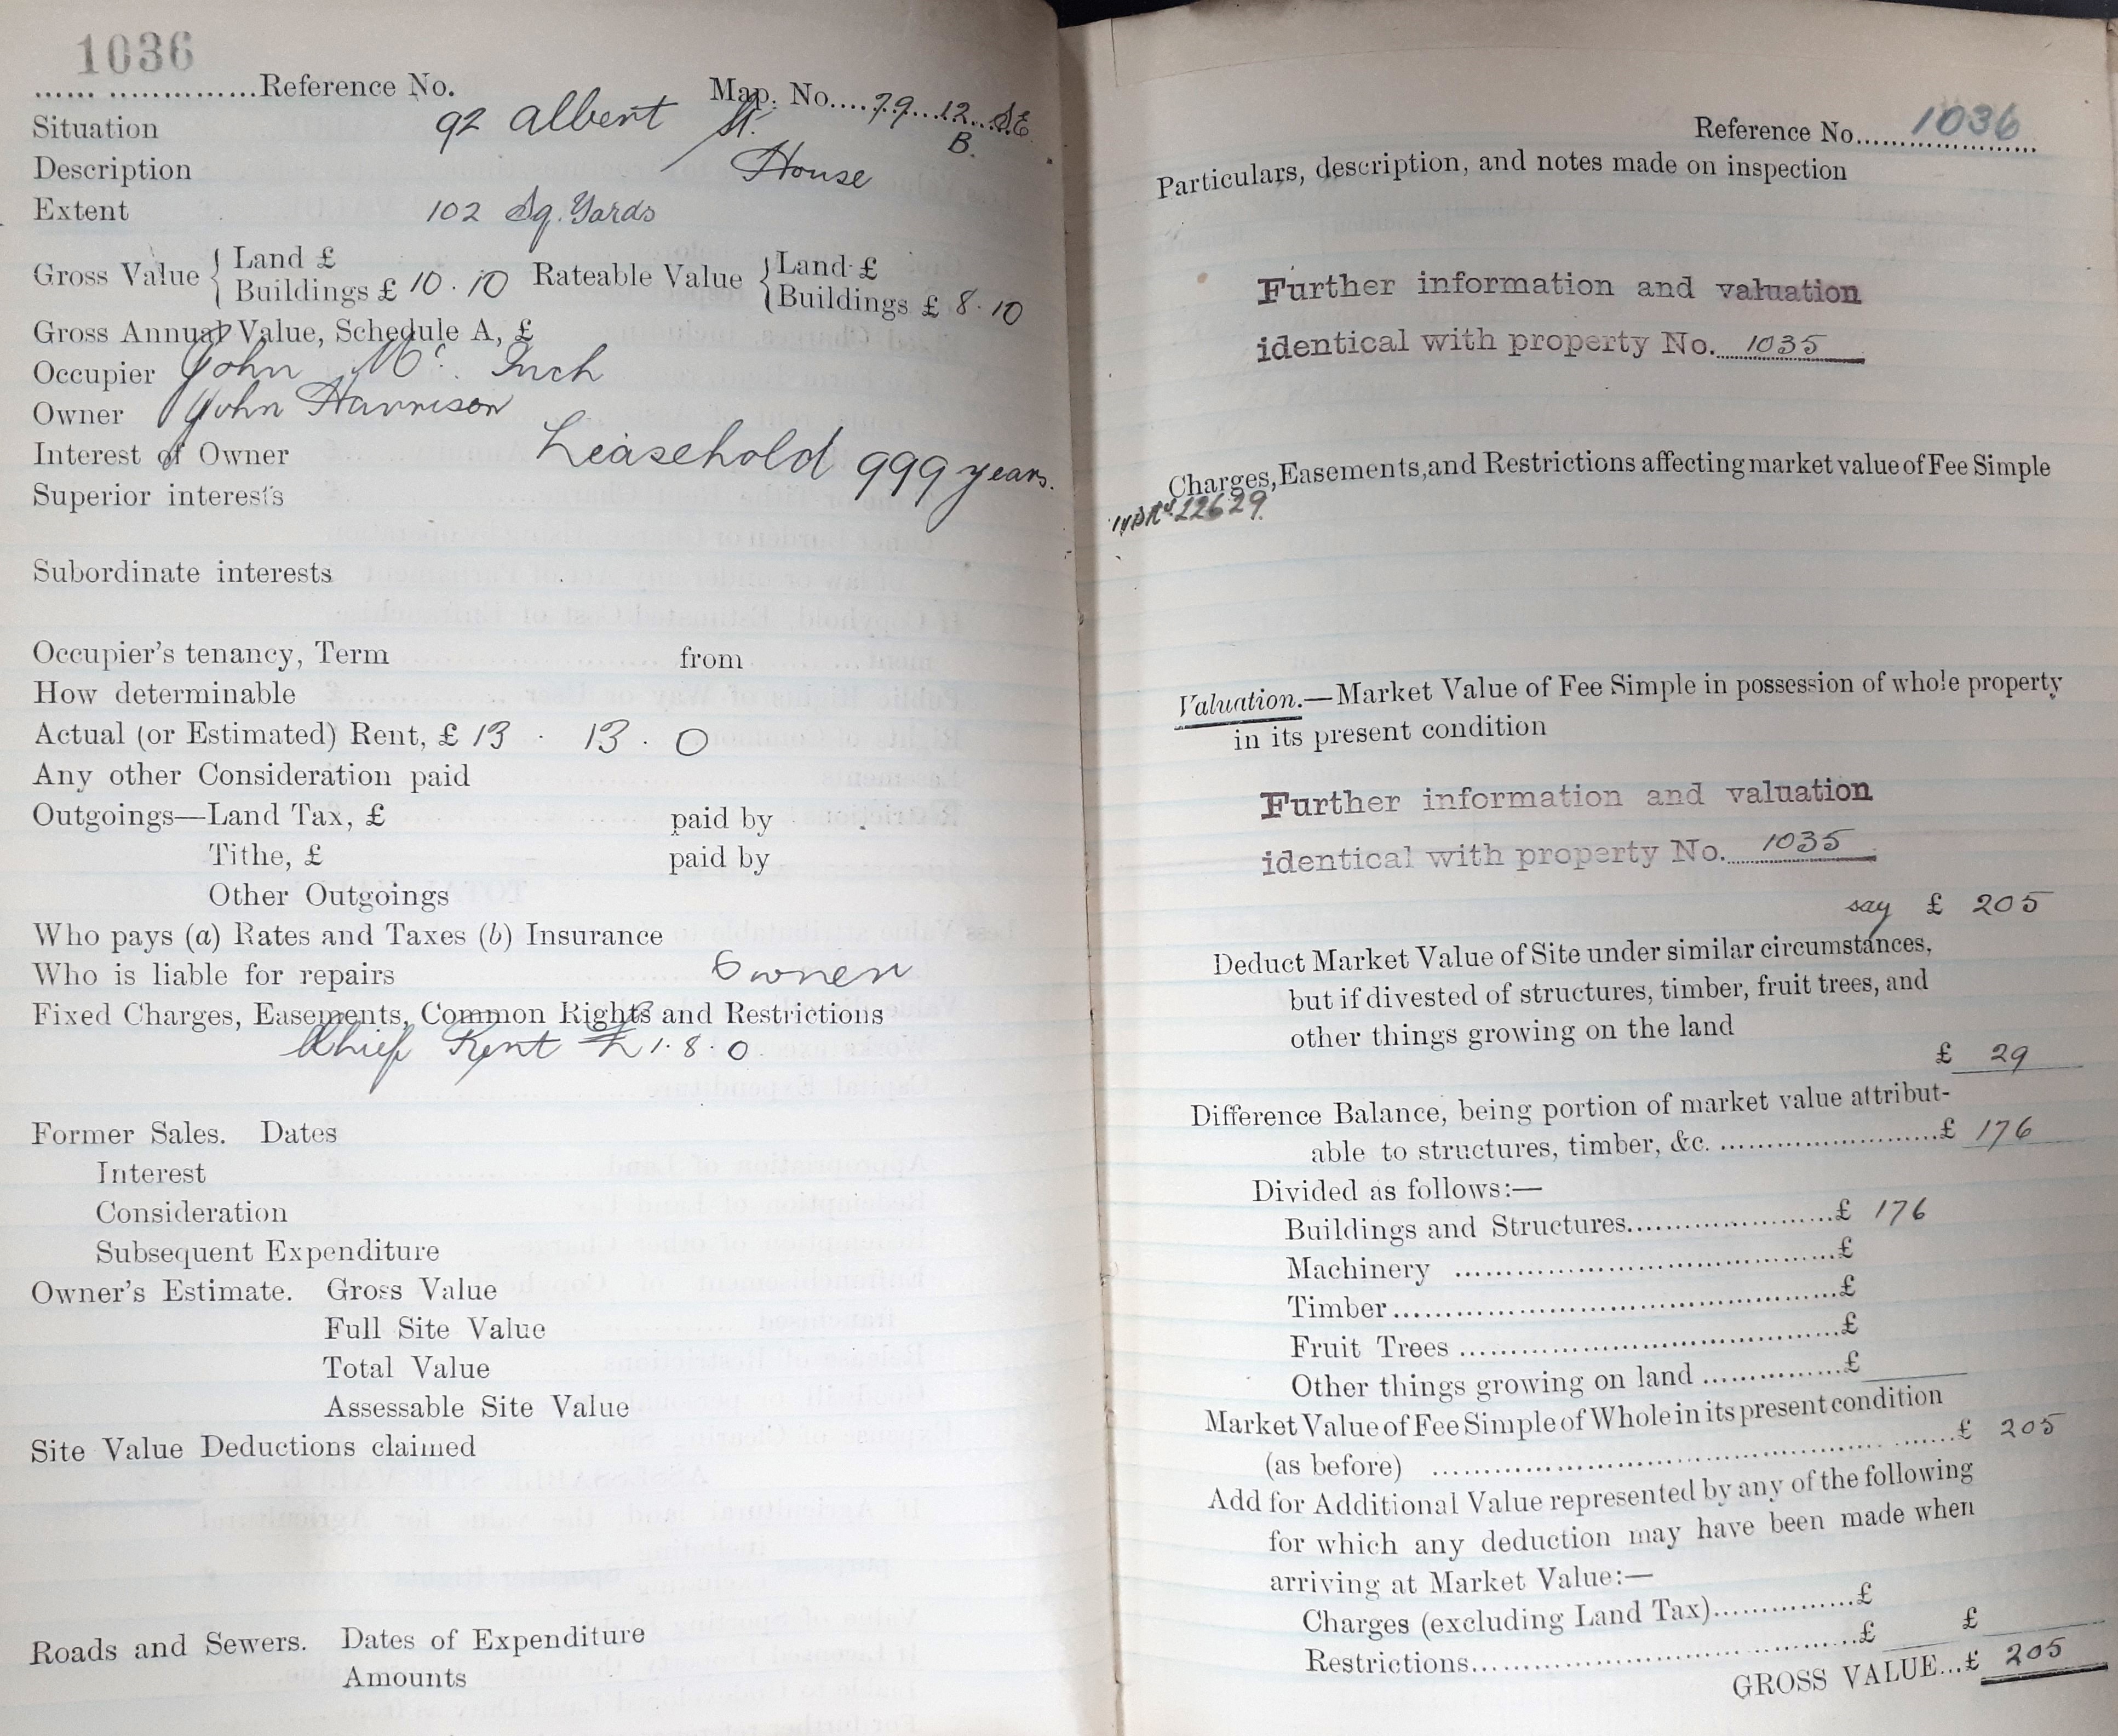 1036
...... ..............Reference No.
Map. No....79...12...SE
B.
Situation 92 Albert St.
Description House
Extent 102 Sq. Yards
Gross Value { Land £
Buildings £ 10 . 10
Rateable Value { Land £
Buildings £ 8 . 10
Gross Annual Value, Schedule A, £
Occupier John Mc. Inch
Owner John Harrison
Interest of Owner Leasehold 999 years.
Superior interests
Subordinate interests
Occupier's tenancy, Term from
How determinable
Actual (or Estimated) Rent, £ 13 . 13 . 0
Any other Consideration paid
Outgoings—Land Tax, £ paid by
Tithe, £ paid by
Other Outgoings
Who pays (a) Rates and Taxes (b) Insurance
Who is liable for repairs Owner
Fixed Charges, Easements, Common Rights and Restrictions
Chief Rent £1 . 8 . 0
Former Sales. Dates
Interest
Consideration
Subsequent Expenditure
Owner's Estimate. Gross Value
Full Site Value
Total Value
Assessable Site Value
Site Value Deductions claimed
Roads and Sewers. Dates of Expenditure
Amounts
Reference No......1036
Particulars, description, and notes made on inspection
Further information and valuation
identical with property No. 1035
Charges, Easements, and Restrictions affecting market value of Fee Simple
22629.
Valuation.—Market Value of Fee Simple in possession of whole property
in its present condition
Further information and valuation
identical with property No. 1035
say £ 205
Deduct Market Value of Site under similar circumstances,
but if divested of structures, timber, fruit trees, and
other things growing on the land
£ 29
Difference Balance, being portion of market value attribut-
able to structures, timber, &c. ........................£ 176
Divided as follows:—
Buildings and Structures.....................£ 176
Machinery .......................................£
Timber..............................................£
Fruit Trees .......................................£
Other things growing on land ...............£
Market Value of Fee Simple of Whole in its present condition
(as before) ....................................................£ 205
Add for Additional Value represented by any of the following
for which any deduction may have been made when
arriving at Market Value:—
Charges (excluding Land Tax)...............£
Restrictions.......................................£ £
GROSS VALUE...£ 205